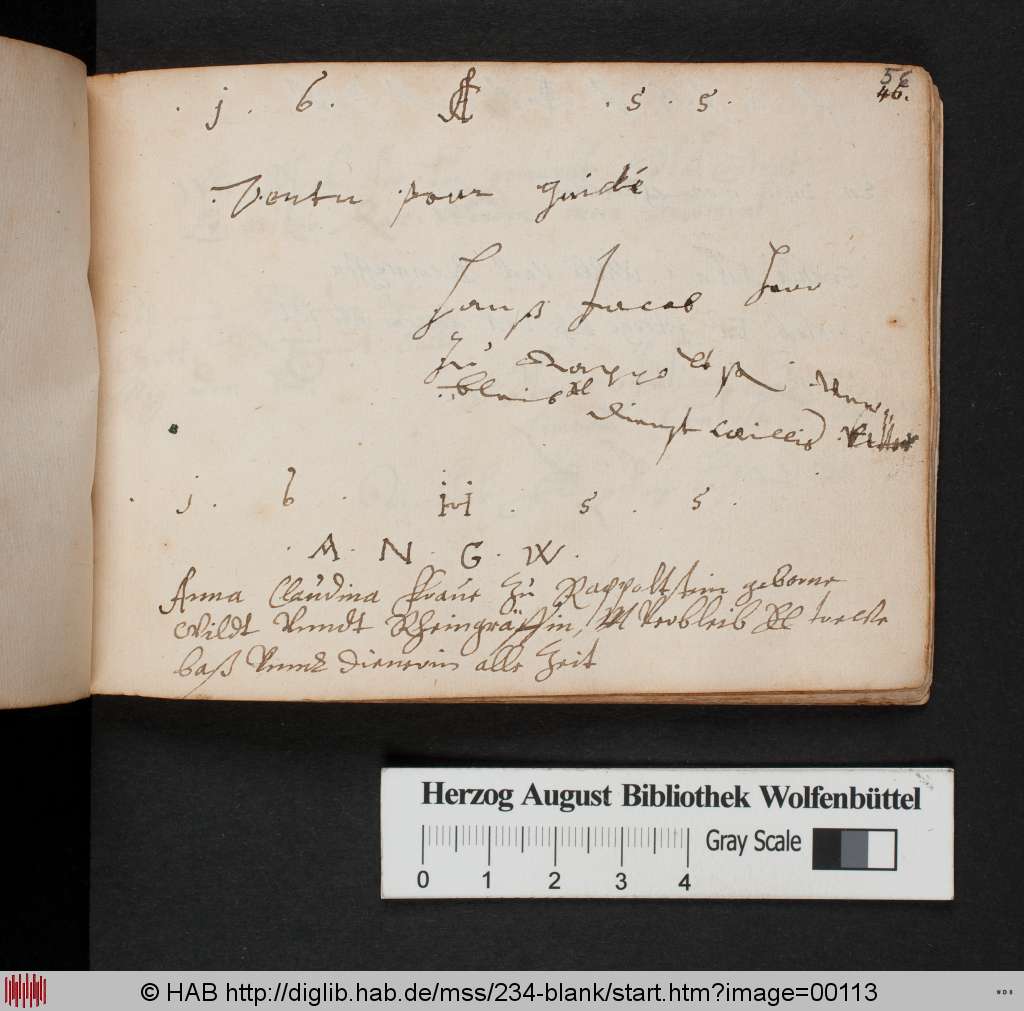 56
46.
. j . 6 . . 5 . 5 .
Vertu pour guide
Hanß Jacob Herr
zu Rappoltstein
verbleib
dienstwilliger Vetter
. j . 6 . . 5 . 5 .
. A . N . G . W .
Anna Claudina Fraue zu Rappoltstein geborne
Wildt Vnndt Rheingräffin, Verbleib
baß Dienerin alle Zeit
Herzog August Bibliothek Wolfenbüttel
Gray Scale
0 1 2 3 4
© HAB http://diglib.hab.de/mss/234-blank/start.htm?image=00113